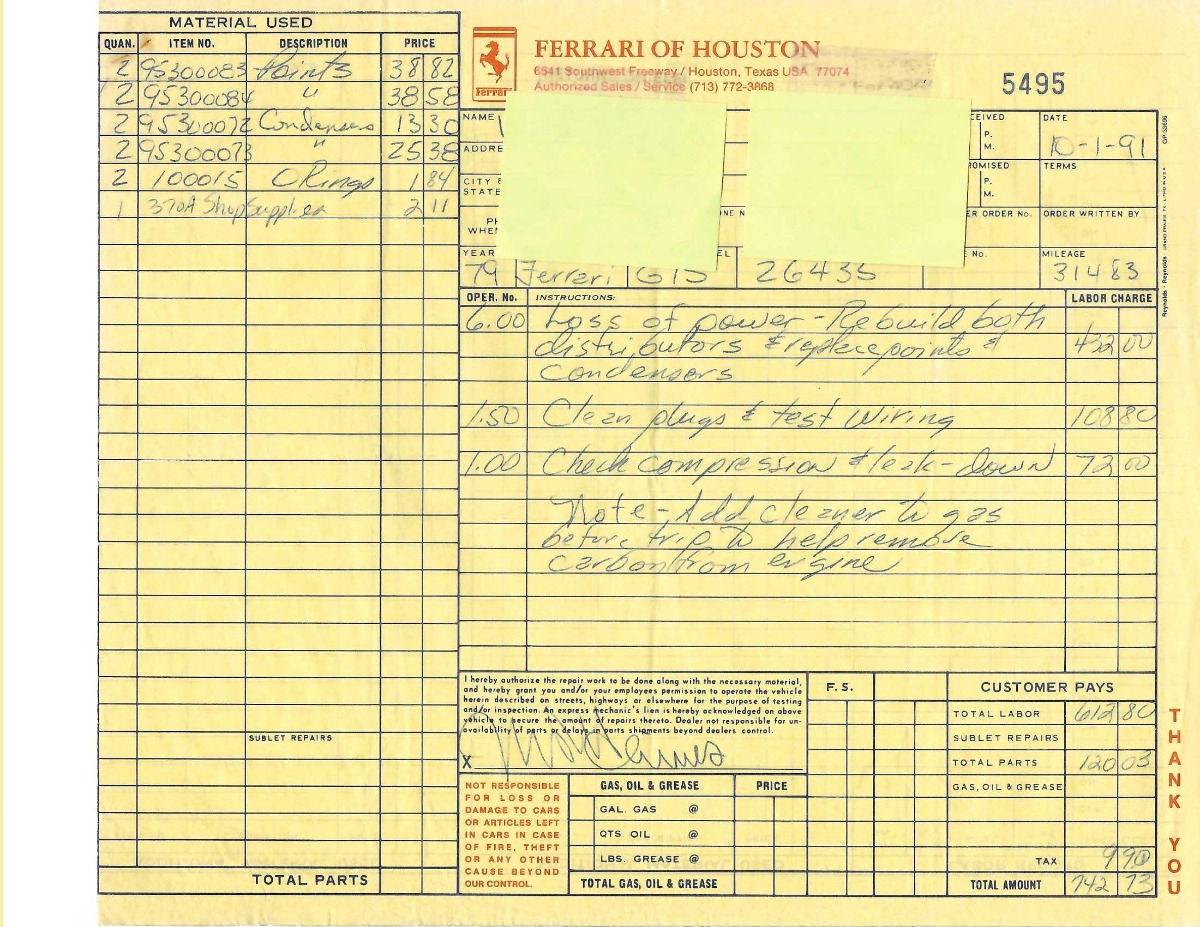 MATERIAL USED
QUAN. ITEM NO. DESCRIPTION PRICE
2 95300083 Points 38 82
2 95300084 " 38 58
2 95300072 Condensers 13 30
2 95300073 " 25 38
2 100015 O Rings 1 84
1 370A Shop Supplies 2 11
SUBLET REPAIRS
TOTAL PARTS
Ferrari
FERRARI OF HOUSTON
6541 Southwest Freeway / Houston, Texas USA 77074
Authorized Sales / Service (713) 772-3868
5495
NAME
ADDRE
CITY
STATE
PH
WHEN
ONE N
CEIVED
P.
M.
DATE
10-1-91
OMISED
P.
M.
TERMS
ER ORDER No.
ORDER WRITTEN BY
YEAR
EL
No.
MILEAGE
79 Ferrari GTS 26435 31483
OPER. No. INSTRUCTIONS: LABOR CHARGE
6.00 Loss of power - Rebuild both
distributors & replace points & 432 00
condensers
1.50 Clean plugs & test wiring 108 80
1.00 Check compression & leak-down 72 00
Note - Add cleaner to gas
before trip to help remove
carbon from engine
I hereby authorize the repair work to be done along with the necessary material,
and hereby grant you and/or your employees permission to operate the vehicle
herein described on streets, highways or elsewhere for the purpose of testing
and/or inspection. An express mechanic's lien is hereby acknowledged on above
vehicle to secure the amount of repairs thereto. Dealer not responsible for un-
availability of parts or delays in parts shipments beyond dealers control.
X
NOT RESPONSIBLE
FOR LOSS OR
DAMAGE TO CARS
OR ARTICLES LEFT
IN CARS IN CASE
OF FIRE, THEFT
OR ANY OTHER
CAUSE BEYOND
OUR CONTROL.
GAS, OIL & GREASE PRICE
GAL. GAS @
QTS. OIL @
LBS. GREASE @
TOTAL GAS, OIL & GREASE
F.S.
CUSTOMER PAYS
TOTAL LABOR 612 80
SUBLET REPAIRS
TOTAL PARTS 120 03
GAS, OIL & GREASE
TAX 9 90
TOTAL AMOUNT 742 73
THANK YOU